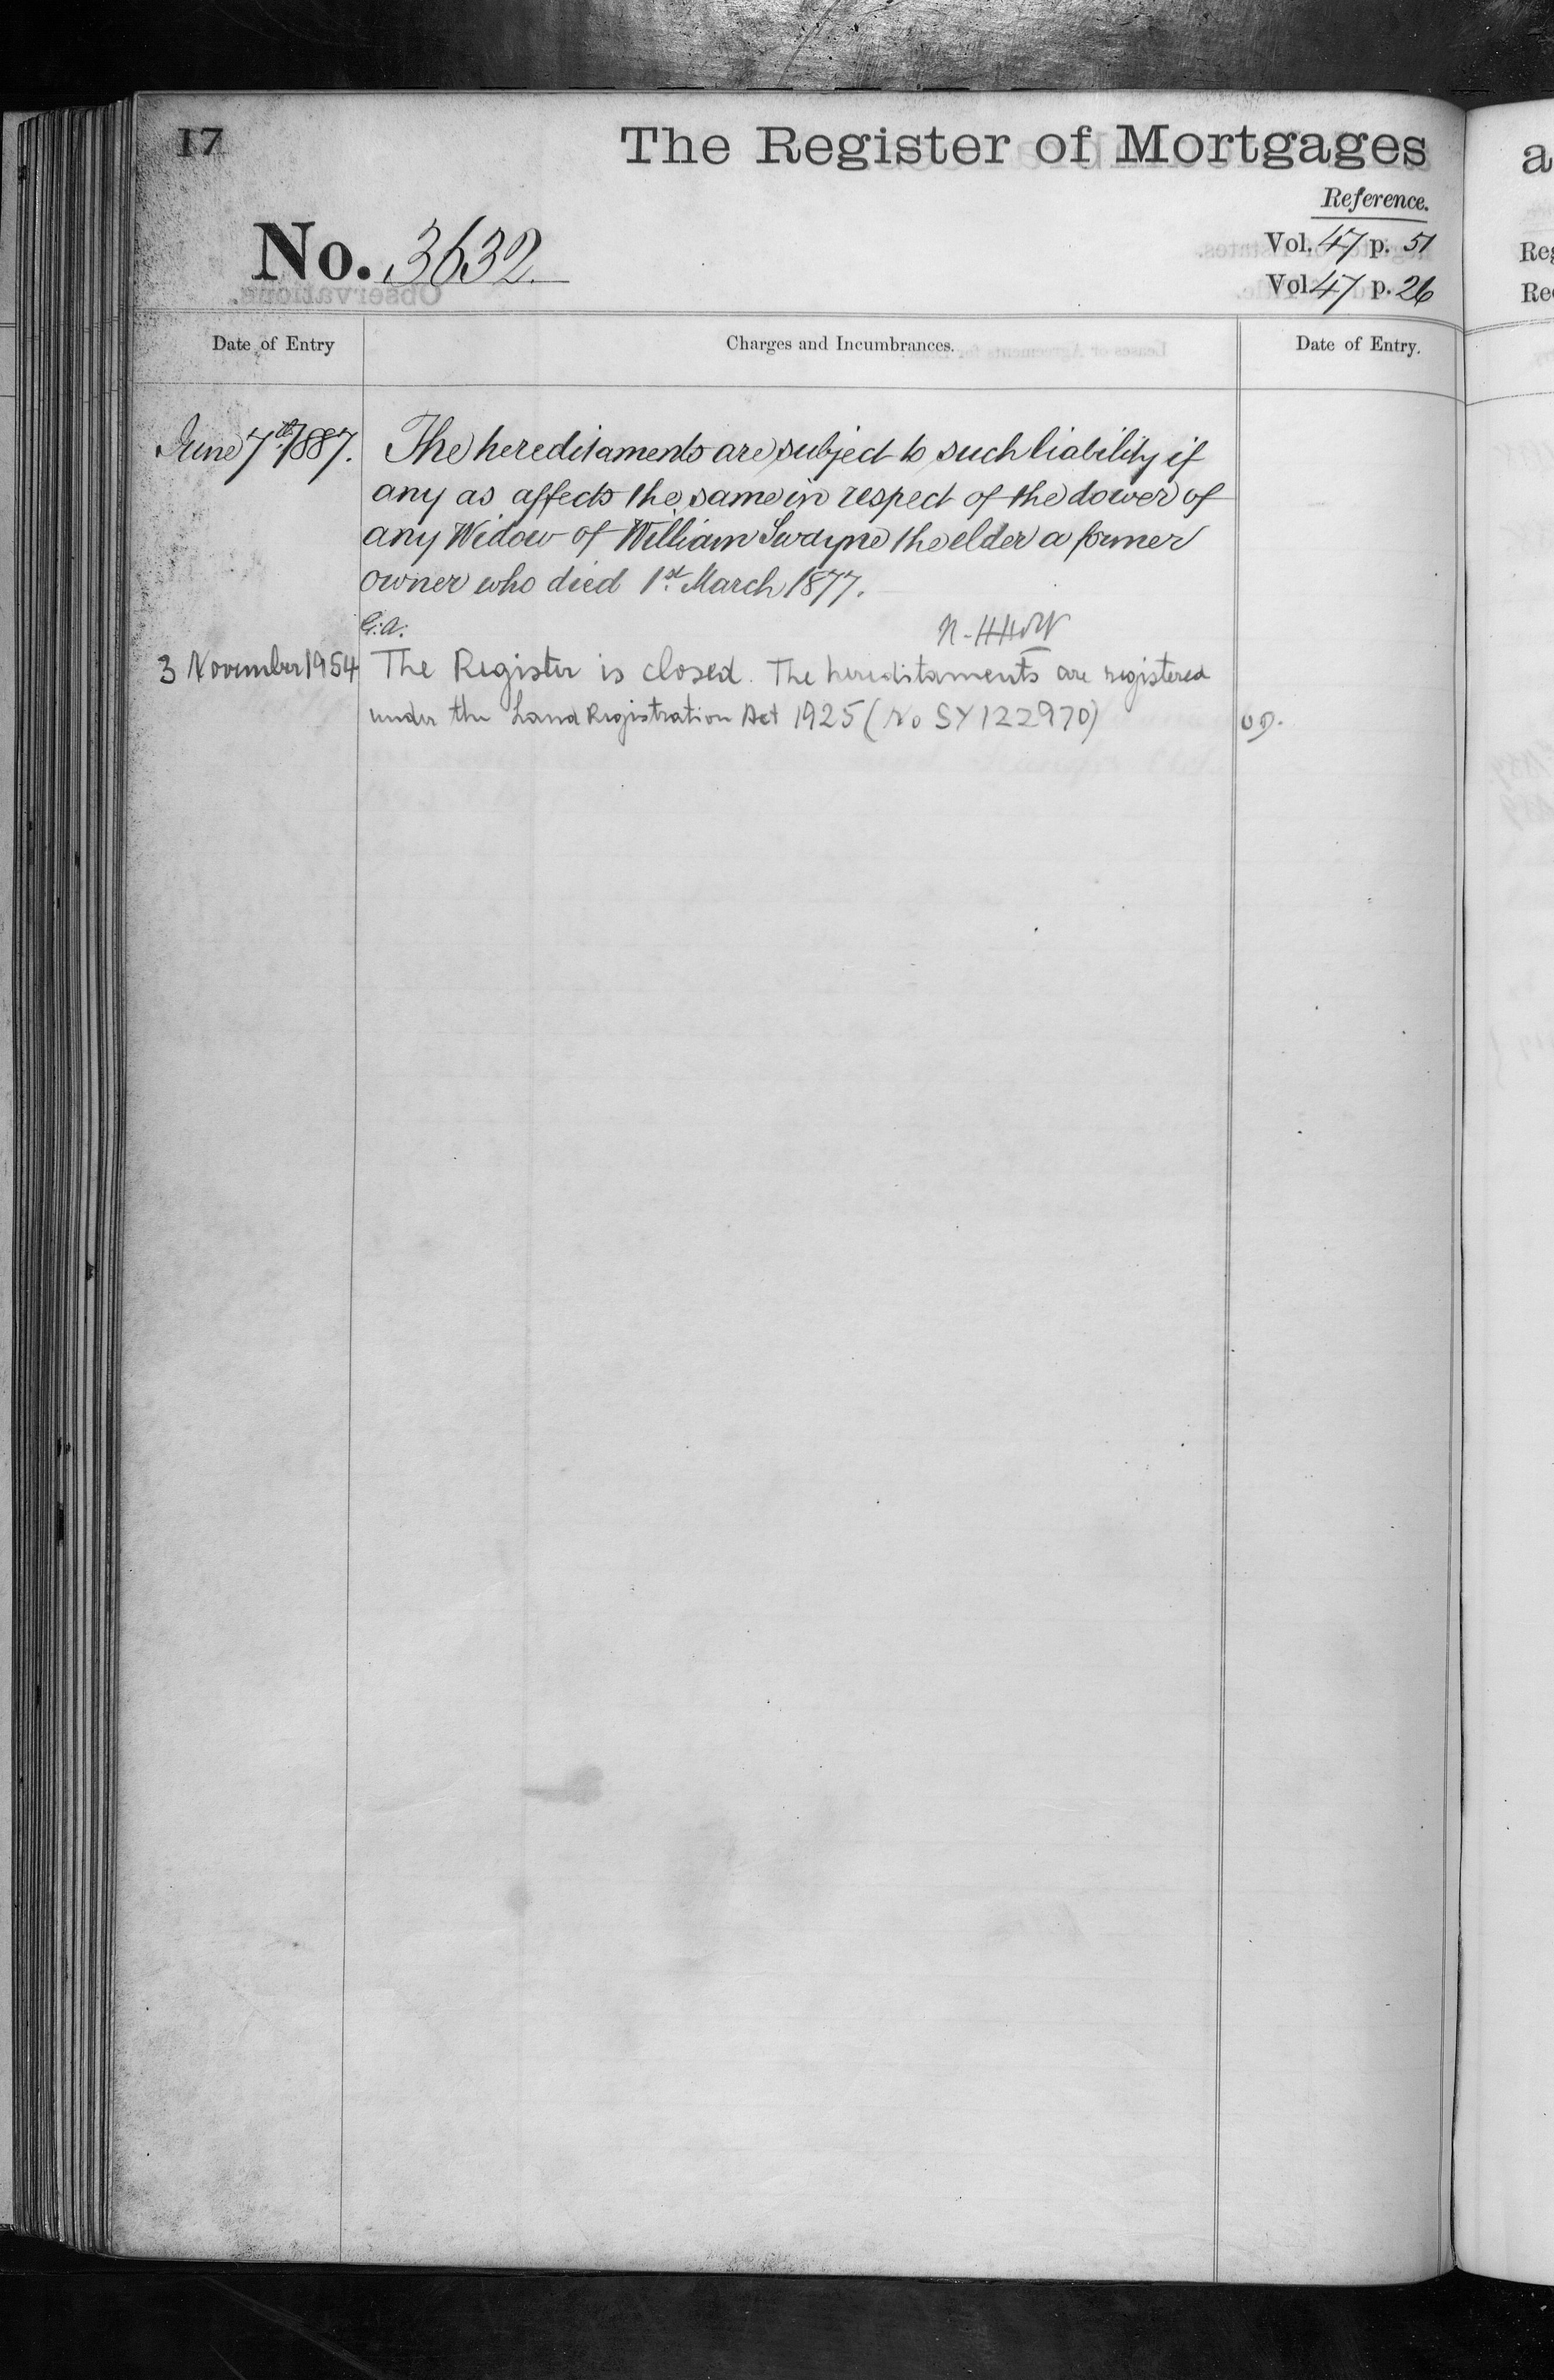 17
The Register of Mortgages
Reference.
No. 3632.
Vol. 47 p. 51
Vol. 47 p. 26
Date of Entry
Charges and Incumbrances.
Date of Entry.
June 7th 1887.
The hereditaments are subject to such liability if
any as affects the same in respect of the dower of
any Widow of William Swayne the elder a former
owner who died 1st March 1877.
3 November 1954
The Register is closed. The hereditaments are registered
under the Land Registration Act 1925 (No SY122970)
a
Reg
Re